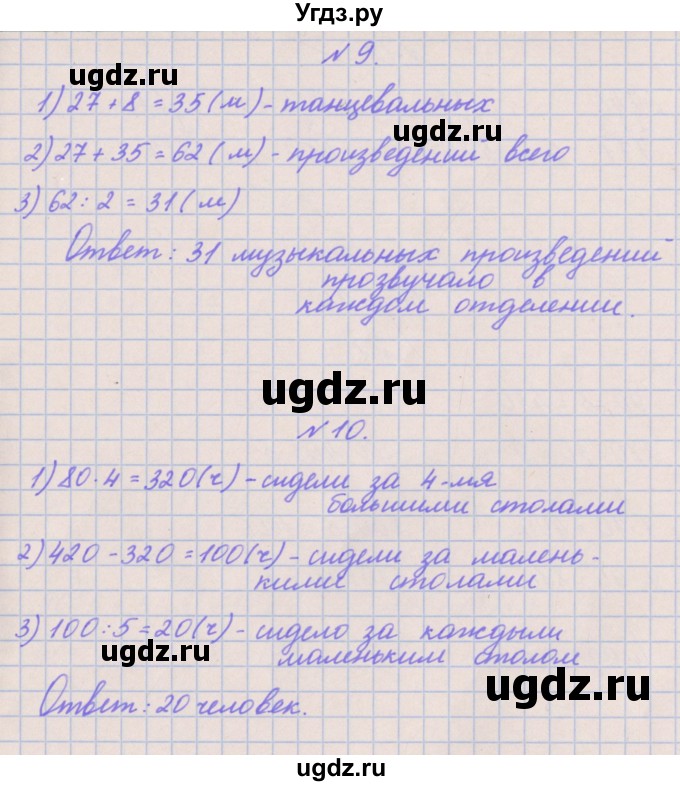 Угдз.ру
№ 9.
ugdz.ru
1) 27 + 8 = 35 (м) - танцевальных
ugdz.ru
2) 27 + 35 = 62 (м) - произведений всего
3) 62 : 2 = 31 (м)
Ответ: 31 музыкальных произведений
прозвучало в
каждом отделении.
ugdz.ru
№ 10.
1) 80 · 4 = 320 (ч) - сидели за 4-мя
большими столами
2) 420 - 320 = 100 (ч) - сидели за малень-
кими столами
3) 100 : 5 = 20 (ч) - сидело за каждым
маленьким столом
ugdz.ru
ugdz.ru
Ответ: 20 человек.
ugdz.ru